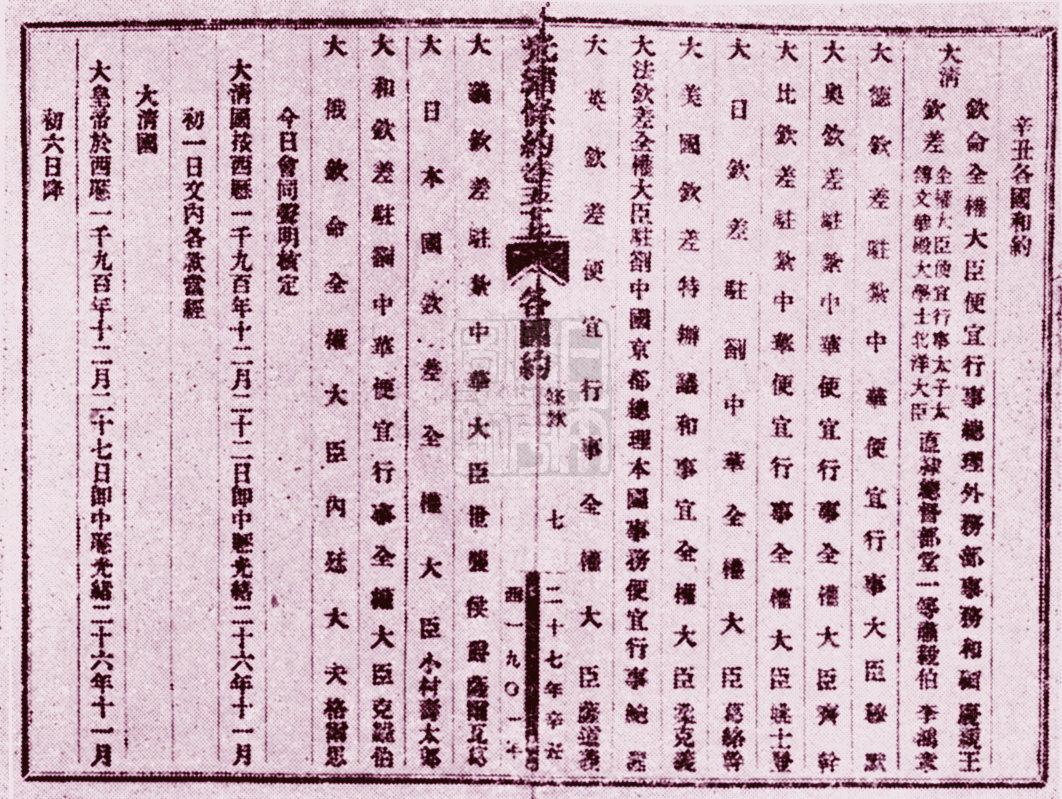 辛丑各國和約
大清
欽命全權大臣便宜行事總理外務部事務和碩慶親王
欽差全權大臣便宜行事太子太傅文華殿大學士北洋大臣直隸總督部堂一等肅毅伯李鴻章
大德欽差駐紮中華便宜行事大臣穆默
大奧欽差駐紮中華便宜行事全權大臣齊幹
大比欽差駐紮中華便宜行事全權大臣姚士登
大日欽差駐劄中華全權大臣葛絡幹
大美國欽差特辦議和事宜全權大臣柔克義
大法欽差全權大臣駐劄中國京都總理本國事務便宜行事鮑
大英欽差便宜行事全權大臣薩道義
光緒條約卷五十 各國約 條款 七 二十七年辛丑 西一九〇一年
大義欽差駐紮中華大臣世襲侯爵薩爾瓦葛
大日本國欽差全權大臣小村壽太郎
大和欽差駐劄中華便宜行事全權大臣克羅伯
大俄欽命全權大臣內廷大夫格爾思
今日會同聲明核定
大清國按西曆一千九百年十二月二十二日卽中曆光緒二十六年十一月
初一日文內各款當經
大清國
大皇帝於西曆一千九百年十二月二十七日卽中曆光緒二十六年十一月
初六日降